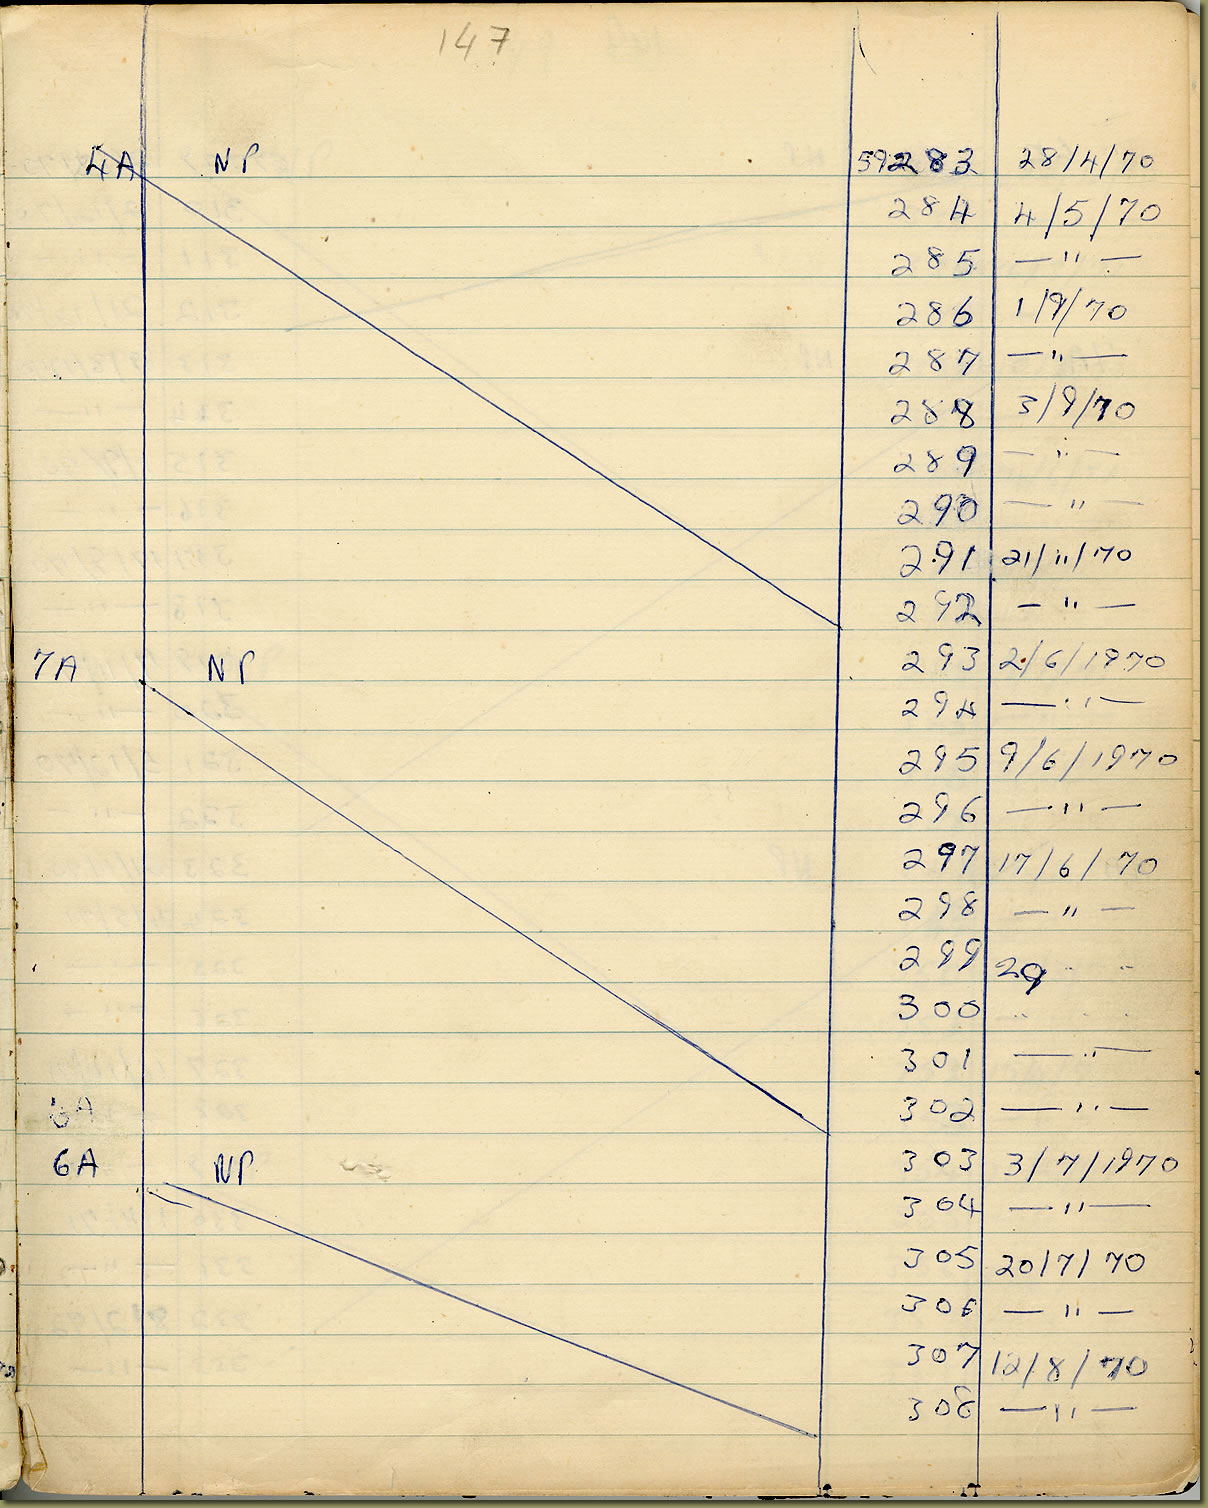 147
4A NP 59283 28/4/70
284 4/5/70
285 — " —
286 1/9/70
287 — " —
288 3/9/70
289 — " —
290 — " —
291 21/11/70
292 — " —
7A NP 293 2/6/1970
294 — " —
295 9/6/1970
296 — " —
297 17/6/70
298 — " —
299 29 " "
300 " "
301 — " —
6A 302 — " —
6A NP 303 3/7/1970
304 — " —
305 20/7/70
306 — " —
307 12/8/70
308 — " —